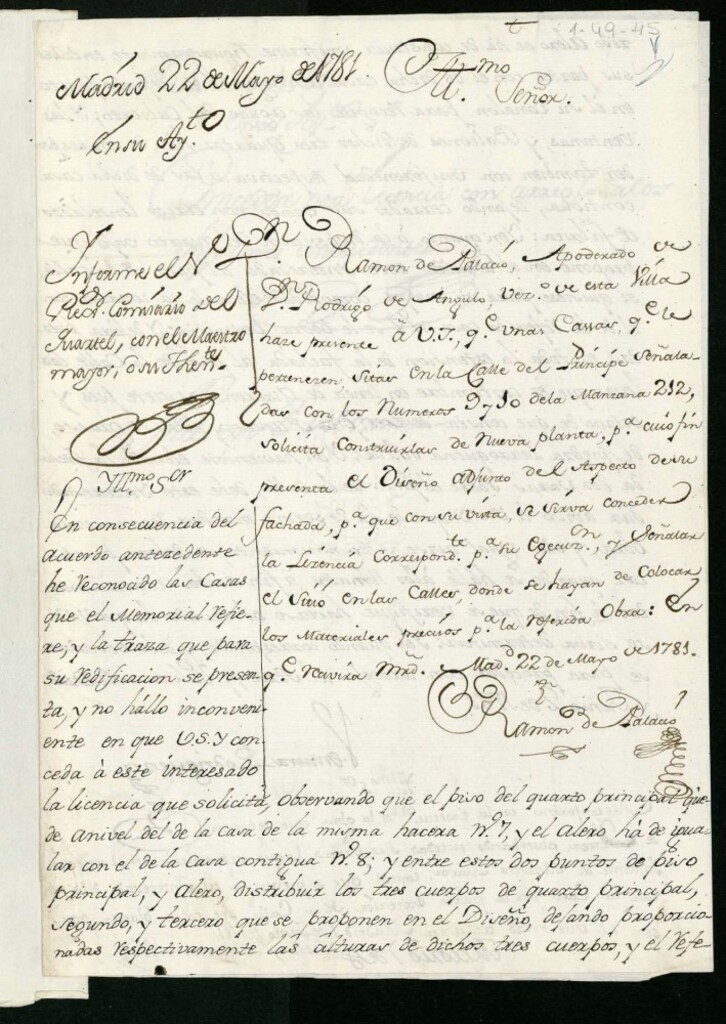 1-49-45
t
Madrid 22 de Mayo de 1781.
En su Ay.to
Ill.mo
Señor.
Informe el Sr.
Reg.or Comisario del
Quartel, con el Maestro
mayor, ó su Then.te
D.n Ramon de Palacio, Apoderado de
D.n Rodrigo de Angulo, Vez.o de esta Villa
haze presente à V.I., q.e unas Cassas, q.e le
pertenezen, sitas en la Calle del Principe señala-
das con los Numeros 9 y 10 de la Manzana 212,
solicita Construirlas de Nueva planta, p.a cuio fin
presenta el Diseño adjunto del Aspecto de su
fachada, p.a que con su vista, se sirva conceder
la Lizencia Correspond.te p.a su Egecuz.on, y señalar
el Sitio en las Calles, donde se hayan de Colocar
los Materiales precisos p.a la referida Obra: En
q.e Recivirà Mrd. Mad.d 22 de Mayo de 1781.
Ramon de Palacio
Yll.mo S.or
En consecuencia del
acuerdo antezedente
he reconocido las Casas
que el Memorial refie-
re, y la traza que para
su redificacion se presen-
ta, y no hállo inconveni-
ente en que V.S.Y con-
ceda à este interesado
la licencia que solicita, observando que el piso del quarto principal que-
de anivel del de la casa de la misma hacera Nº. 7, y el alero há de igua-
lar con el de la Casa contigua Nº. 8; y entre estos dos puntos de piso
principal, y alero, distribuir los tres cuerpos de quarto principal,
segundo, y tercero que se proponen en el Diseño, dejando proporcio-
nadas respectivamente las alturas de dichos tres cuerpos, y el refe-